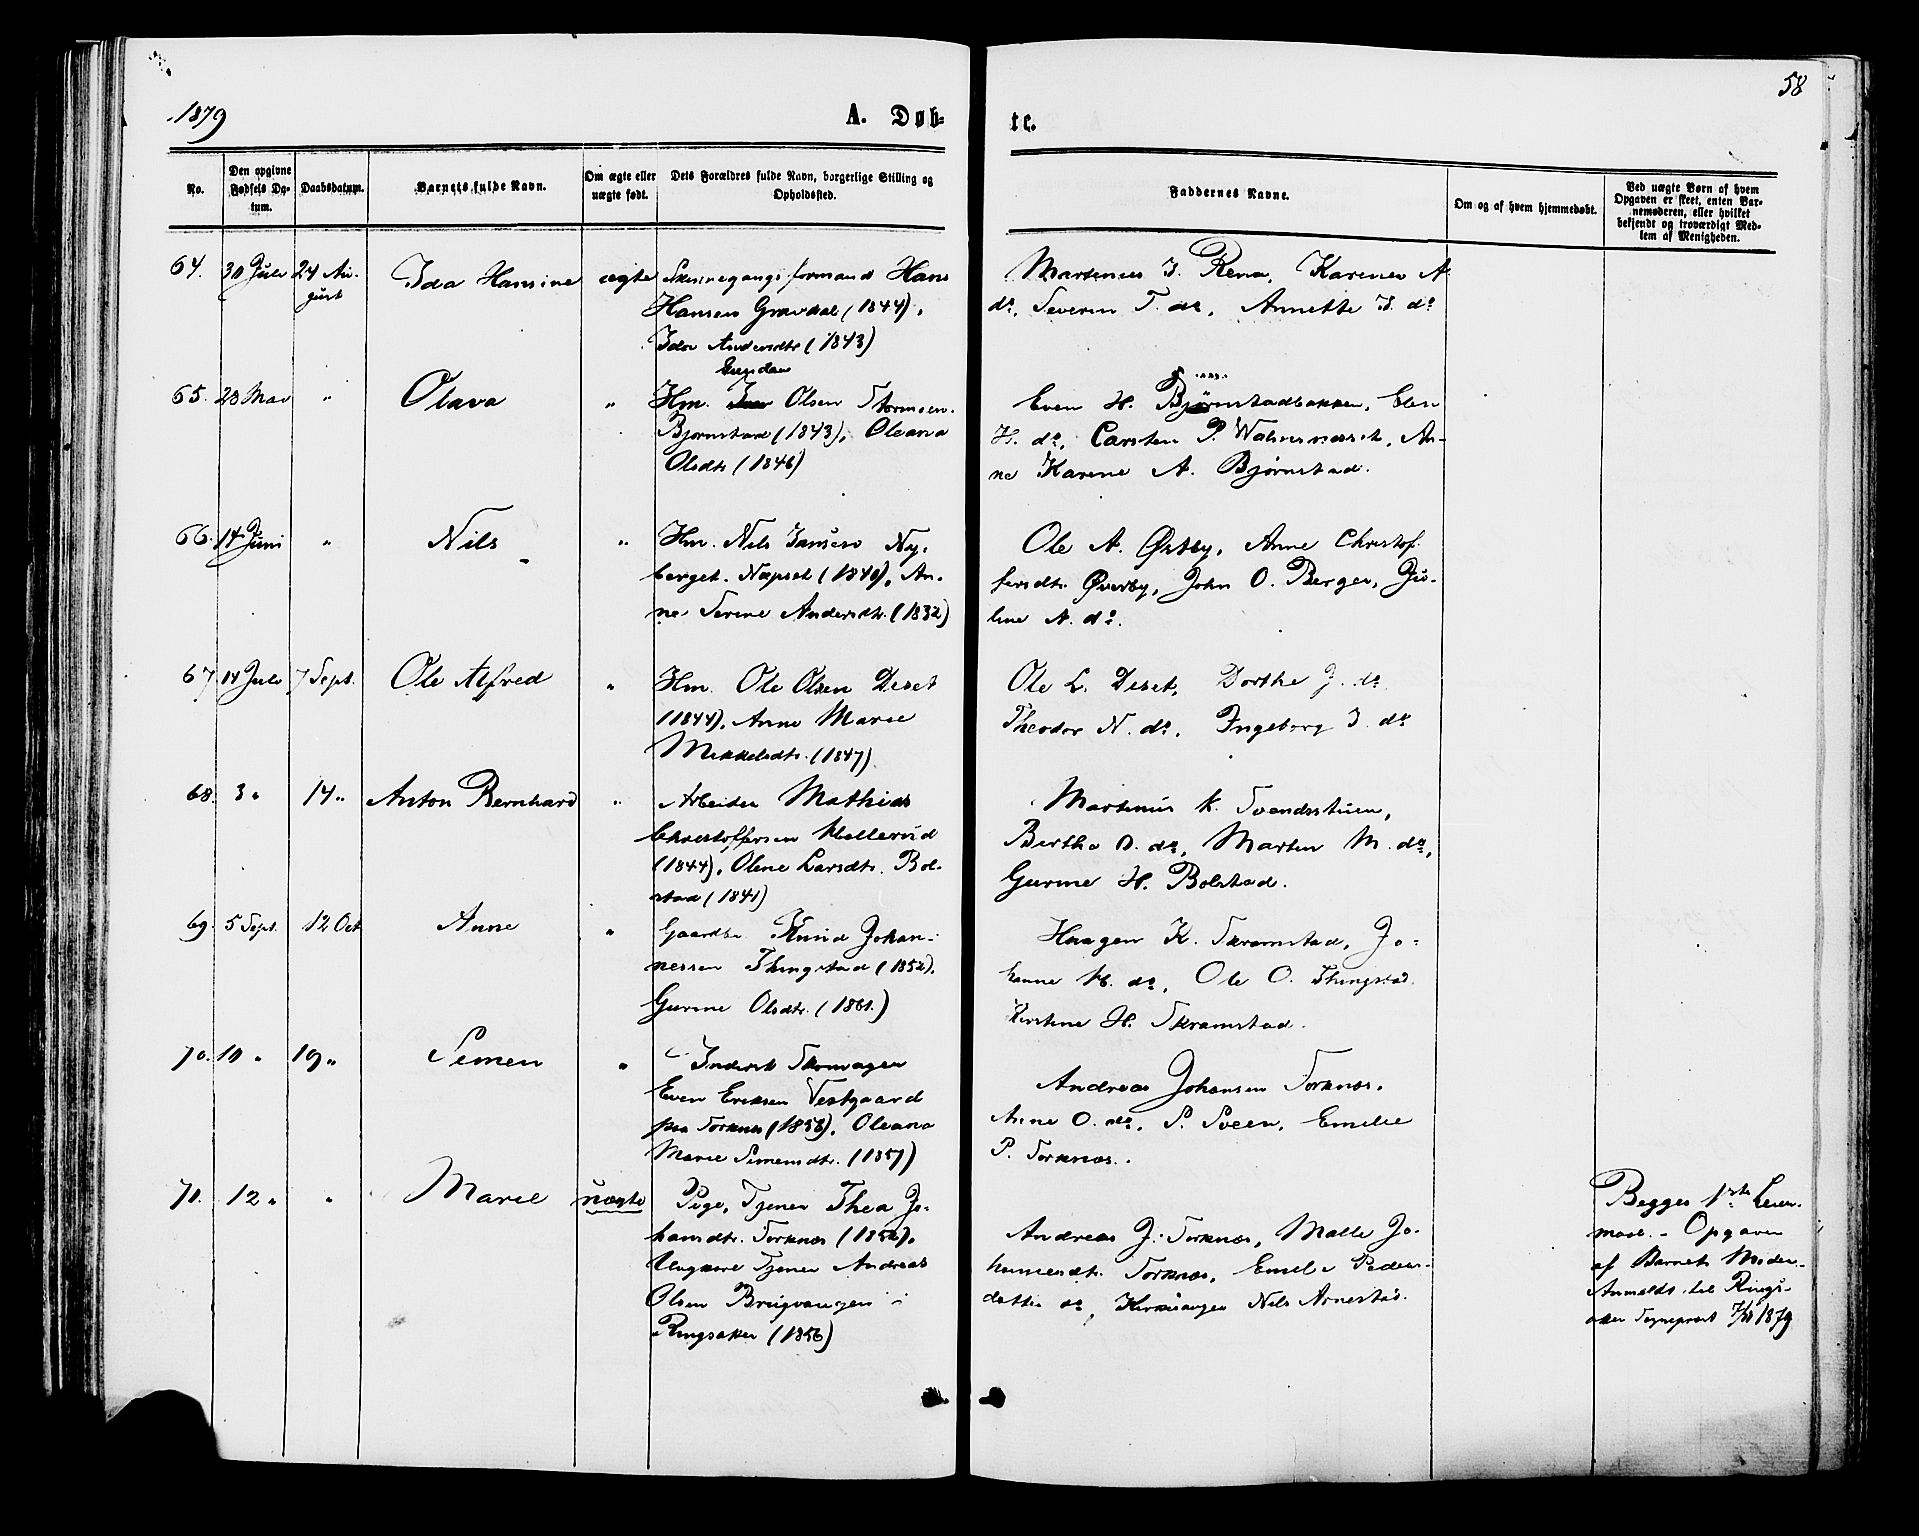 58
1879
A. Døb-
te.
No.
Den opgivne Fødsels Da-tum.
Daabsdatum.
Barnets fulde Navn.
Om ægte eller uægte født.
Dets Forældres fulde Navn, borgerlige Stilling og Opholdssted.
Faddernes Navne.
Om og af hvem hjemmedøbt.
Ved uægte Børn af hvem Opgaven er skeet, enten Bar-nemoderen, eller hvilket bekjendt og troværdigt Med-lem af Menigheden.
64. 30 Juli 24 Au- Ida Hansine ægte Skinnegangsformand Hans
gust Hansen Gravdal (1844),
Ida Andersdtr (1843)
Martinius J. Rena, Karine A.
do, Severin T. do, Annette J. do
65. 23 Mai " Olava " Hm. Olsen
Bjørnstad (1843), Oleana
Olsdtr (1846)
Even H. Bjørnstadbakken, Elen
H. do, Carsten P. An-
ne Karine A. Bjørnstad.
66. 14 Juni " Nils " Hm. Nils Jansen Ny-
berget. Næpset (1840), An-
ne Serine Andersdtr. (1832)
Ole A. Østby, Anne Christof-
fersdtr. Øverby, John O. Berger, Ju-
line N. do.
67. 14 Juli 7 Sept. Ole Alfred " Hm. Ole Olsen Deset
(1844), Anne Marie
Mikkelsdtr. (1847)
Ole L. Deset, Dorthe J. do
Theodor N. do, Ingeborg J. do
68. 3 " 14 " Anton Bernhard " Arbeider Mathias
Christoffersen
(1844), Oline Larsdtr. Bol-
stad (1841)
Martinius K. Svendsstuen,
Berthe O. do, Marten M. do,
Gurine H. Bolstad.
69. 5 Sept. 12 Oct Anne " Gaardbr Knud Johan-
nessen Thingstad (1852),
Gurine Olsdtr. (1861.)
Haagen K. Skramstad, Jo-
hanne H. do, Ole O. Thingstad.
Kirstine H. Skramstad.
70. 10 " 19 " Simen " Inderst Skomager
Even Eriksen Vestgaard
paa Torknæs (1856), Oleana
Marie Simensdtr. (1857)
Andreas Johansen Torknæs.
Anne O. do, S. Sveen, Emilie
P. Torknæs.
71. 12 " " Marie uægte Pige, Tjener Thea Jo-
hansdtr. Torknæs (1856),
Ungkarl Tjener Andreas
Olsen i
Ringsaker (1856)
Andreas J. Torknæs, Malle Jo-
hannesdtr. Torknæs, Emilie Peders-
datter do, Kirkesanger Nils Arnestad.
Begges 1ste Leier-
maal. - Opgaven
af Barnets Moder.
Anmeldt til Rings-
aker Sogneprest 1879